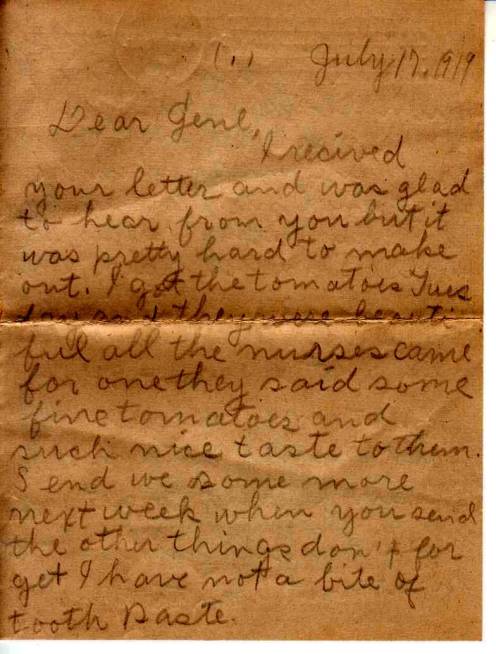 (1.)
July 17, 1919
Dear Gene,
I recived
your letter and was glad
to hear from you but it
was pretty hard to make
out. I got the tomatoes Tues
day and they were beauti
ful all the nurses came
for one they said some
fine tomatoes and
such nice taste to them.
Send we some more
next week when you send
the other things don't for
get I have not a bite of
tooth paste.